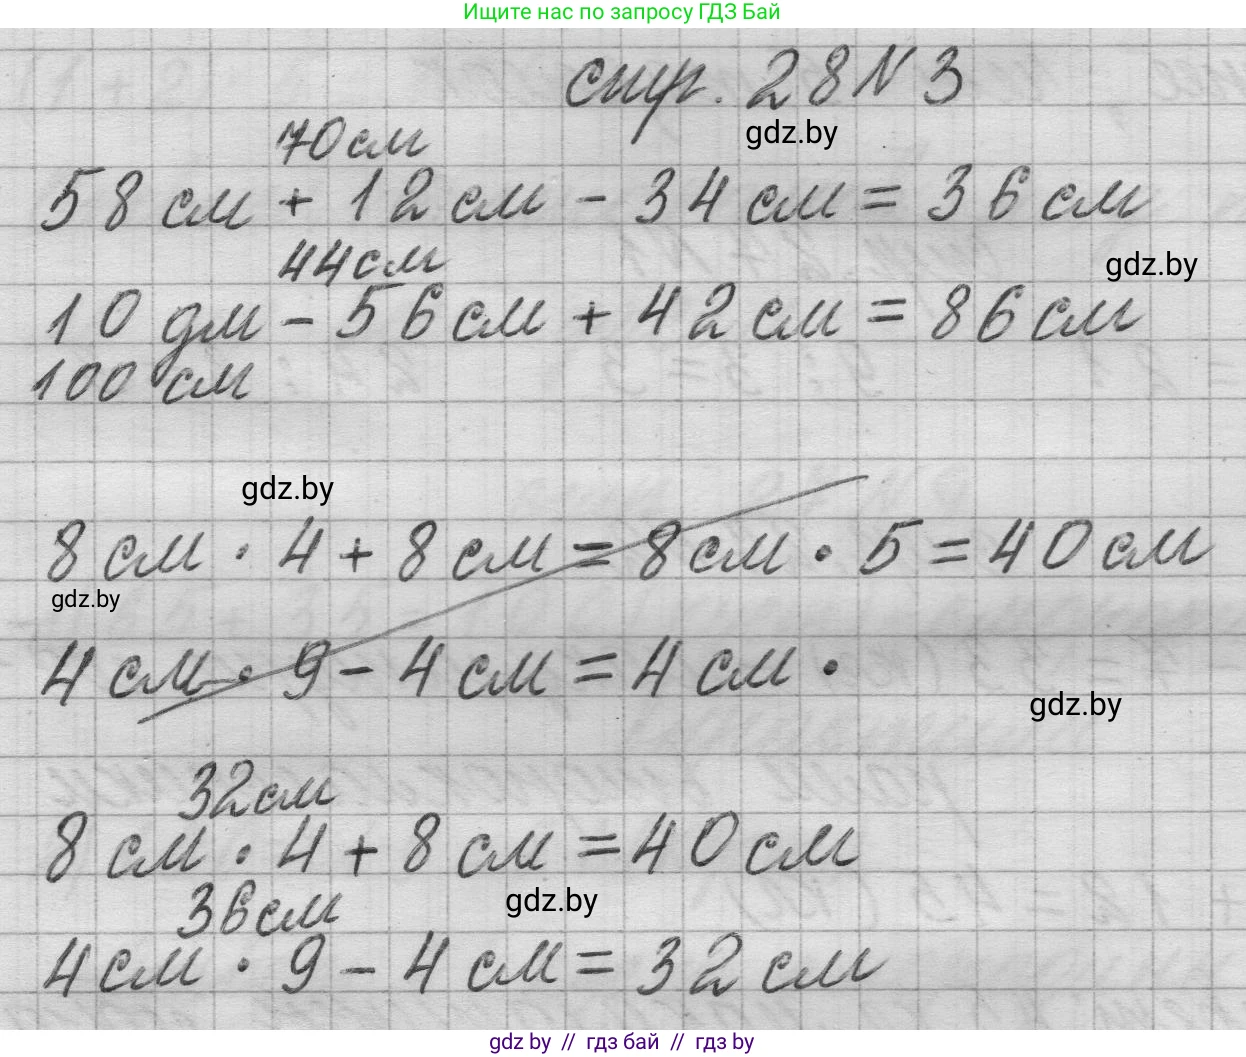 Ищите нас по запросу ГДЗ Бай
стр. 28 N 3
gdz.by
70 см
58 см + 12 см - 34 см = 36 см
44 см
gdz.by
10 дм - 56 см + 42 см = 86 см
100 см
gdz.by
8 см · 4 + 8 см = 8 см · 5 = 40 см
gdz.by
4 см · 9 - 4 см = 4 см ·
gdz.by
32 см
8 см · 4 + 8 см = 40 см
36 см
gdz.by
4 см · 9 - 4 см = 32 см
gdz.by // гдз бай // gdz by